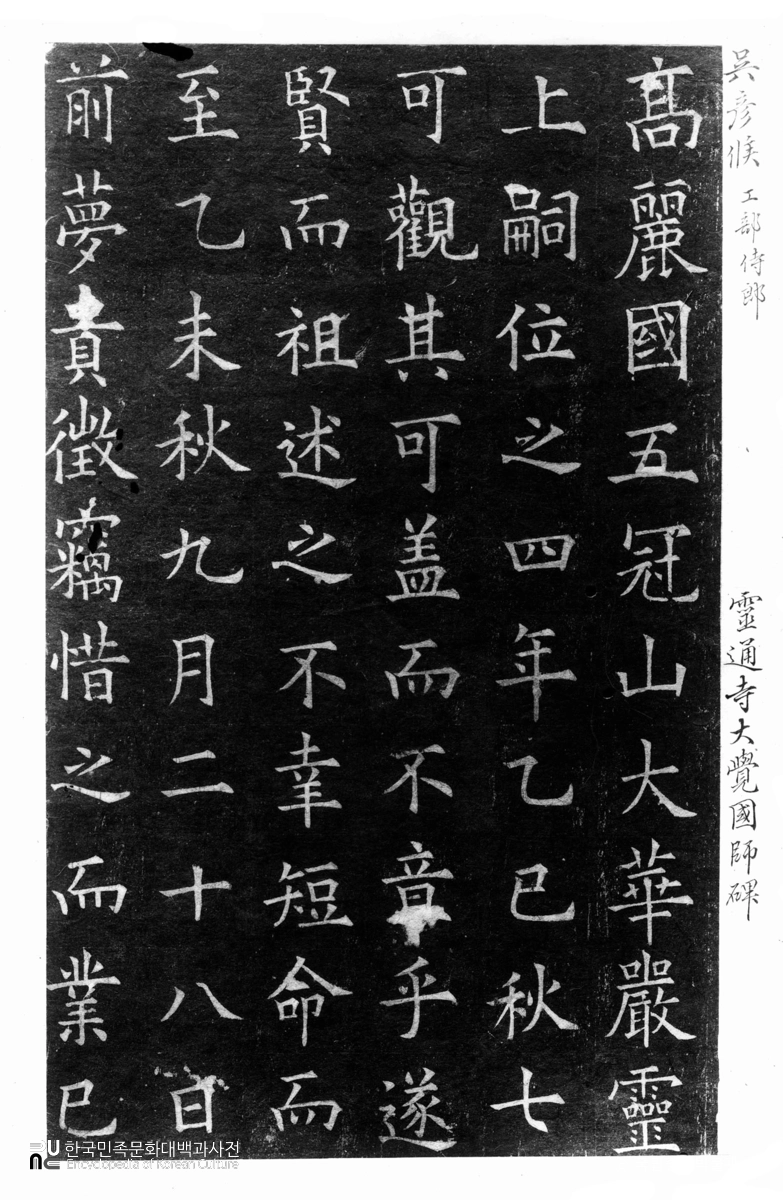 吳彦侯 工部侍郎
靈通寺大覺國師碑
髙麗國五冠山大華嚴靈
上嗣位之四年乙巳秋七
可觀其可盖而不音乎遂
賢而祖述之不幸短命而
至乙未秋九月二十八日
前夢貴徵竊惜之而業已
한국민족문화대백과사전
Encyclopedia of Korean Culture